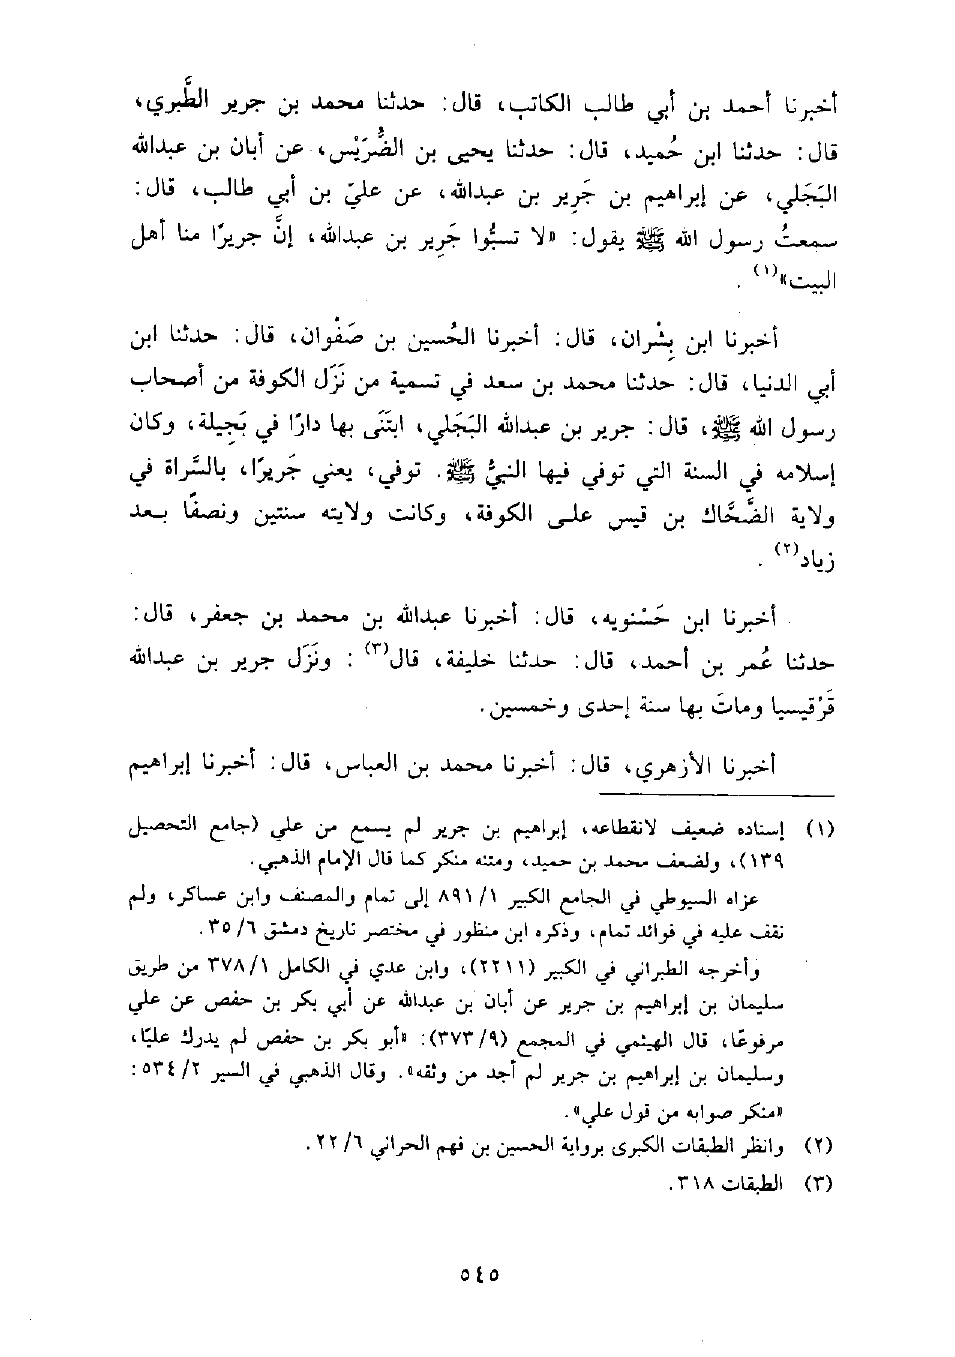 أخبرنا أحمد بن أبي طالب الكاتب، قال: حدثنا محمد بن جرير الطَّبري،
قال: حدثنا ابن حُميد، قال: حدثنا يحيى بن الضُّرَيْس، عن أبان بن عبدالله
البَجَلي، عن إبراهيم بن جَرِير بن عبدالله، عن عليّ بن أبي طالب، قال:
سمعتُ رسول الله ﷺ يقول: «لا تسبُّوا جَرِير بن عبدالله، إنَّ جريرًا منا أهل
البيت»(١) .
أخبرنا ابن بِشْران، قال: أخبرنا الحُسين بن صَفْوان، قال: حدثنا ابن
أبي الدنيا، قال: حدثنا محمد بن سعد في تسمية من نَزَل الكوفة من أصحاب
رسول الله ﷺ، قال: جرير بن عبدالله البَجَلي، ابتَنَى بها دارًا في بَجِيلة، وكان
إسلامه في السنة التي توفي فيها النبيُّ ﷺ. توفي، يعني جَرِيرًا، بالسَّراة في
ولاية الضَّحَّاك بن قيس على الكوفة، وكانت ولايته سنتين ونصفًا بعد
زياد(٢) .
أخبرنا ابن حَسْنويه، قال: أخبرنا عبدالله بن محمد بن جعفر، قال:
حدثنا عُمر بن أحمد، قال: حدثنا خليفة، قال(٣) : ونَزَل جرير بن عبدالله
قَرْقيسيا وماتَ بها سنة إحدى وخمسين.
أخبرنا الأزهري، قال: أخبرنا محمد بن العباس، قال: أخبرنا إبراهيم
(١) إسناده ضعيف لانقطاعه، إبراهيم بن جرير لم يسمع من علي (جامع التحصيل
١٣٩)، ولضعف محمد بن حميد، ومتنه منكر كما قال الإمام الذهبي.
عزاه السيوطي في الجامع الكبير ١/ ٨٩١ إلى تمام والمصنف وابن عساكر، ولم
نقف عليه في فوائد تمام، وذكره ابن منظور في مختصر تاريخ دمشق ٦/ ٣٥.
وأخرجه الطبراني في الكبير (٢٢١١)، وابن عدي في الكامل ١/ ٣٧٨ من طريق
سليمان بن إبراهيم بن جرير عن أبان بن عبدالله عن أبي بكر بن حفص عن علي
مرفوعًا، قال الهيثمي في المجمع (٩/ ٣٧٣): «أبو بكر بن حفص لم يدرك عليًا،
وسليمان بن إبراهيم بن جرير لم أجد من وثقه». وقال الذهبي في السير ٢/ ٥٣٤:
«منكر صوابه من قول علي».
(٢) وانظر الطبقات الكبرى برواية الحسين بن فهم الحراني ٦/ ٢٢.
(٣) الطبقات ٣١٨.
٥٤٥